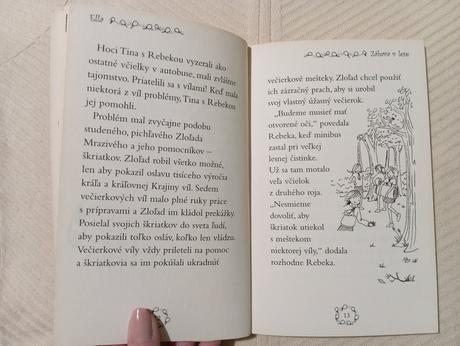 Ella
Hoci Tina s Rebekou vyzerali ako
ostatné včielky v autobuse, mali zvláštne
tajomstvo. Priatelili sa s vílami! Keď mala
niektorá z víl problémy, Tina s Rebekou
jej pomohli.
Problém mal zvyčajne podobu
studeného, pichľavého Zloľada
Mrazivého a jeho pomocníkov –
škriatkov. Zloľad robil všetko možné,
len aby pokazil oslavu tisíceho výročia
kráľa a kráľovnej Krajiny víl. Sedem
večierkových víl malo plné ruky práce
s prípravami a Zloľad im kládol prekážky.
Posielal svojich škriatkov do sveta ľudí,
aby pokazili toľko osláv, koľko len vládzu.
Večierkové víly vždy prileteli na pomoc
a škriatkovia sa im pokúšali ukradnúť
Záhora v lese
večierkové mešteky. Zloľad chcel použiť
ich zázračný prach, aby si urobil
svoj vlastný úžasný večierok.
„Budeme musieť mať
otvorené oči,“ povedala
Rebeka, keď minibus
zastal pri veľkej
lesnej čistinke.
Už sa tam motalo
veľa včielok
z druhého roja.
„Nesmieme
dovoliť, aby
škriatok utiekol
s meštekom
niektorej víly,“ dodala
rozhodne Rebeka.
13